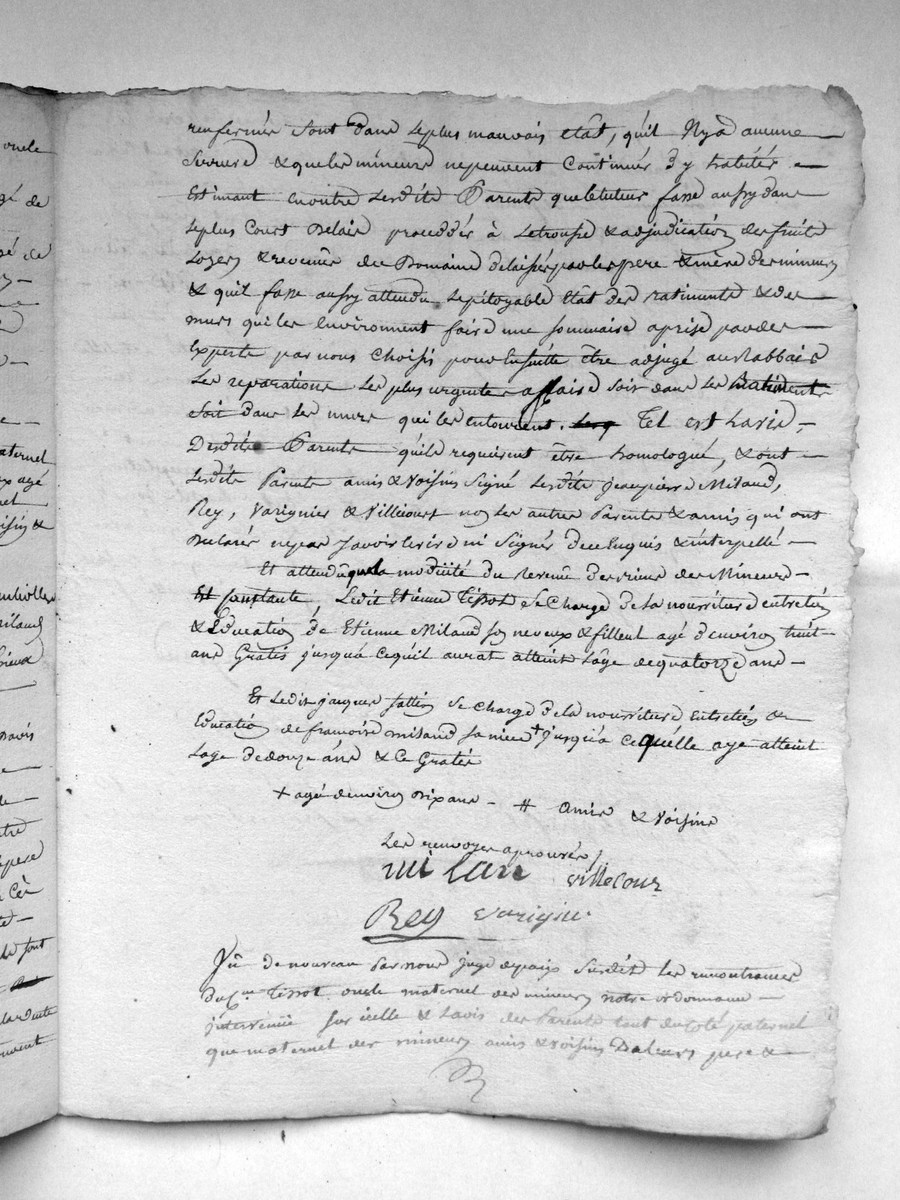 renfermés sont dans le plus mauvais etât, qu'il Ny a aucune
serrure & que les mineurs ne peuvent continuér d'y habitér
Estimant en outre lesdits Parents que le tuteur fasse aussy dans
le plus court delais procédér à Letrousse & adjudication des fruits
Loyers & revenus du Domaine délaissé par les pere & mere des mineurs
& quil fasse aussy attendu le pitoyable Etat des batiments & des
murs qui les environnent faire une sommaire aprise par des
Experts par nous choisis pour Ensuitte être adjugé au Rabbais
Les reparations les plus urgentes affaire soit dans les Batiments
soit dans les murs qui les entourent. Tel est L'avis
Desdits Parents qu'ils requierent être homologué, & ont
Lesdits Parents amis & voisins signé lesdits jean pierre Miland,
Rey, Varignier & Villecourt non les autres Parents & amis qui ont
Declarés ne pas savoir Ecrire ni signér de ce Enquis & interpellé
Et attendû que la modicité du Revenu des mineurs
Est constante, Ledit Etienne Tissot se charge de la nourriture entretien
& Education de Etienne Miland son neveux & filleul agé d'environ huit
ans Gratis jusqu'a ce quil aurat atteint l'âge de quatorze ans
Et Ledit jacques se charge de la nourriture Entretien &
Education de francoise miland sa niece + jusqu'a ce quélle aye atteint
Lage de douze ans & ce Gratis
+ agé d'environ dix ans - # amis & voisins
Les renvoyes aprouvés /.
milan villecour
Rey varignie
Vû de nouveau Par nous juge de paix susdit les remontrances
Du Cen Tissot oncle maternel des mineurs notre ordonnance
intervenüe sur icelle & L'avis des Parents tant du coté paternel
que maternel des mineurs amis & voisins De leurs pere &